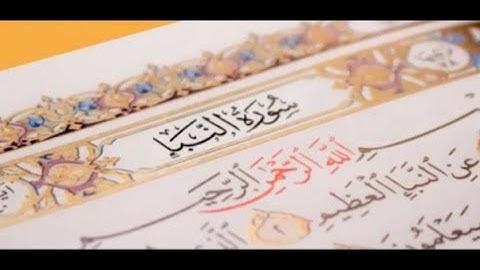 سُورَةُ النَّبَإِ
ٱللَّهِ ٱلرَّحْمَٰنِ ٱلرَّحِيمِ
عَنِ ٱلنَّبَإِ ٱلْعَظِيمِ ٢
سَيَعْلَمُونَ